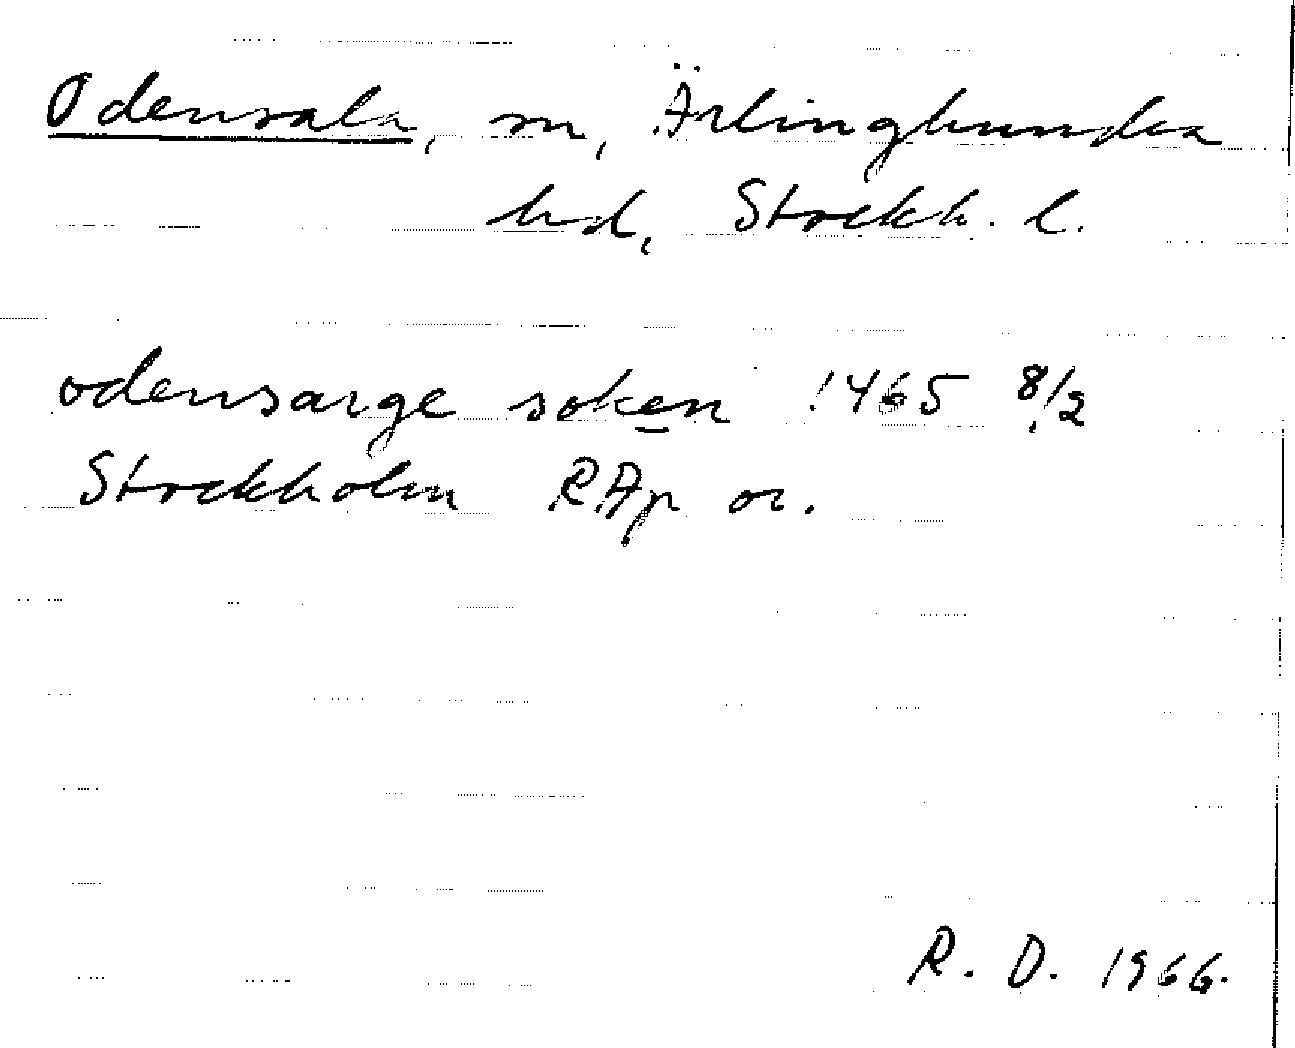 Odensala, sn, Ärlinghundra
hd, Stockh. l.
odensarge soken 1465 8/2
Stockholm RAp or.
R. D. 1966.